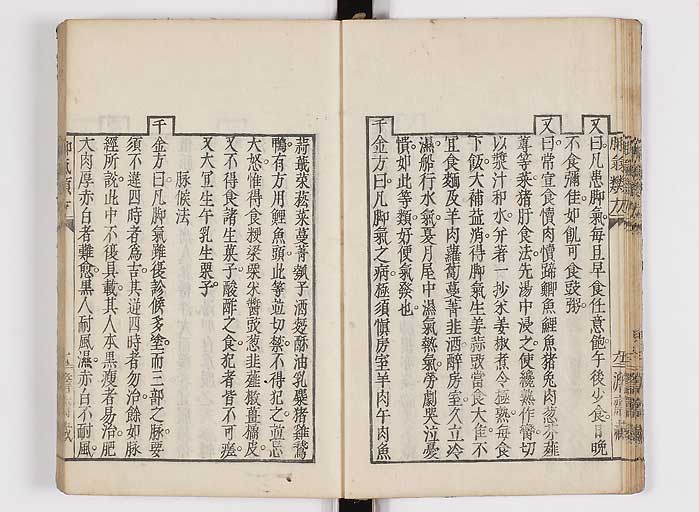 又曰凡患脚氣每旦早食任意飽午後少食日晚
不食彌佳如飢可食豉粥
又曰常宜食犢肉犢蹄鯽魚鯉魚猪兔肉葱芥薤
蓴等菜猪肝食法先湯中浸之使纔熟作臠切
以漿汁和水并著一抄米姜椒煮令極熟每食
下飯大補益消得脚氣生姜蒜豉當食大隹不
宜食麵及羊肉蘿蔔蔓菁韭酒醉房室久立冷
濕船行水氣夏月尾中濕氣熱氣勞劇哭泣憂
憒如此等類好使氣發也
千金方曰凡脚氣之病極須愼房室羊肉牛肉魚
蒜蕺菜菘菜蔓菁瓠子酒麪酥油乳糜猪雞鵞
鴨有方用鯉魚頭此等並切禁不得犯之並忌
大怒惟得食粳粱粟米醬豉葱韭薤椒薑橘皮
又不得食諸生菓子酸酢之食犯者皆不可瘥
又大宜生牛乳生栗子
脉候法
千金方曰凡脚氣雖復診候多塗而三部之脉要
須不違四時者為吉其逆四時者勿治餘如脉
經所說此中不復具載其人本黑瘦者易治肥
大肉厚赤白者難愈黑人耐風濕赤白不耐風